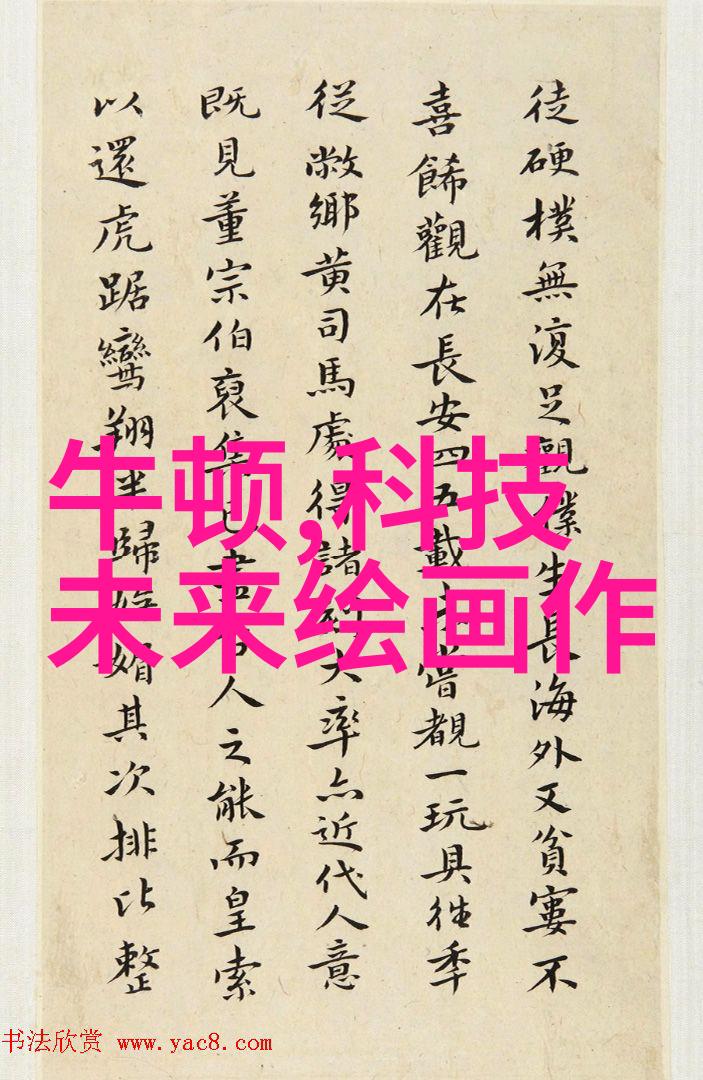 徒硬樸無復足觀僕生長海外又貧窶不
喜餙觀在長安四五載嘗覩一玩具往季
從敝鄉黄司馬處得諸大率亦近代人意
既見董宗伯裒集書人之能而皇索
以還虎踞鸞翔坐歸媚其次排比整
牛顿,科技
未来绘画作
书法欣赏 www.yac8.com